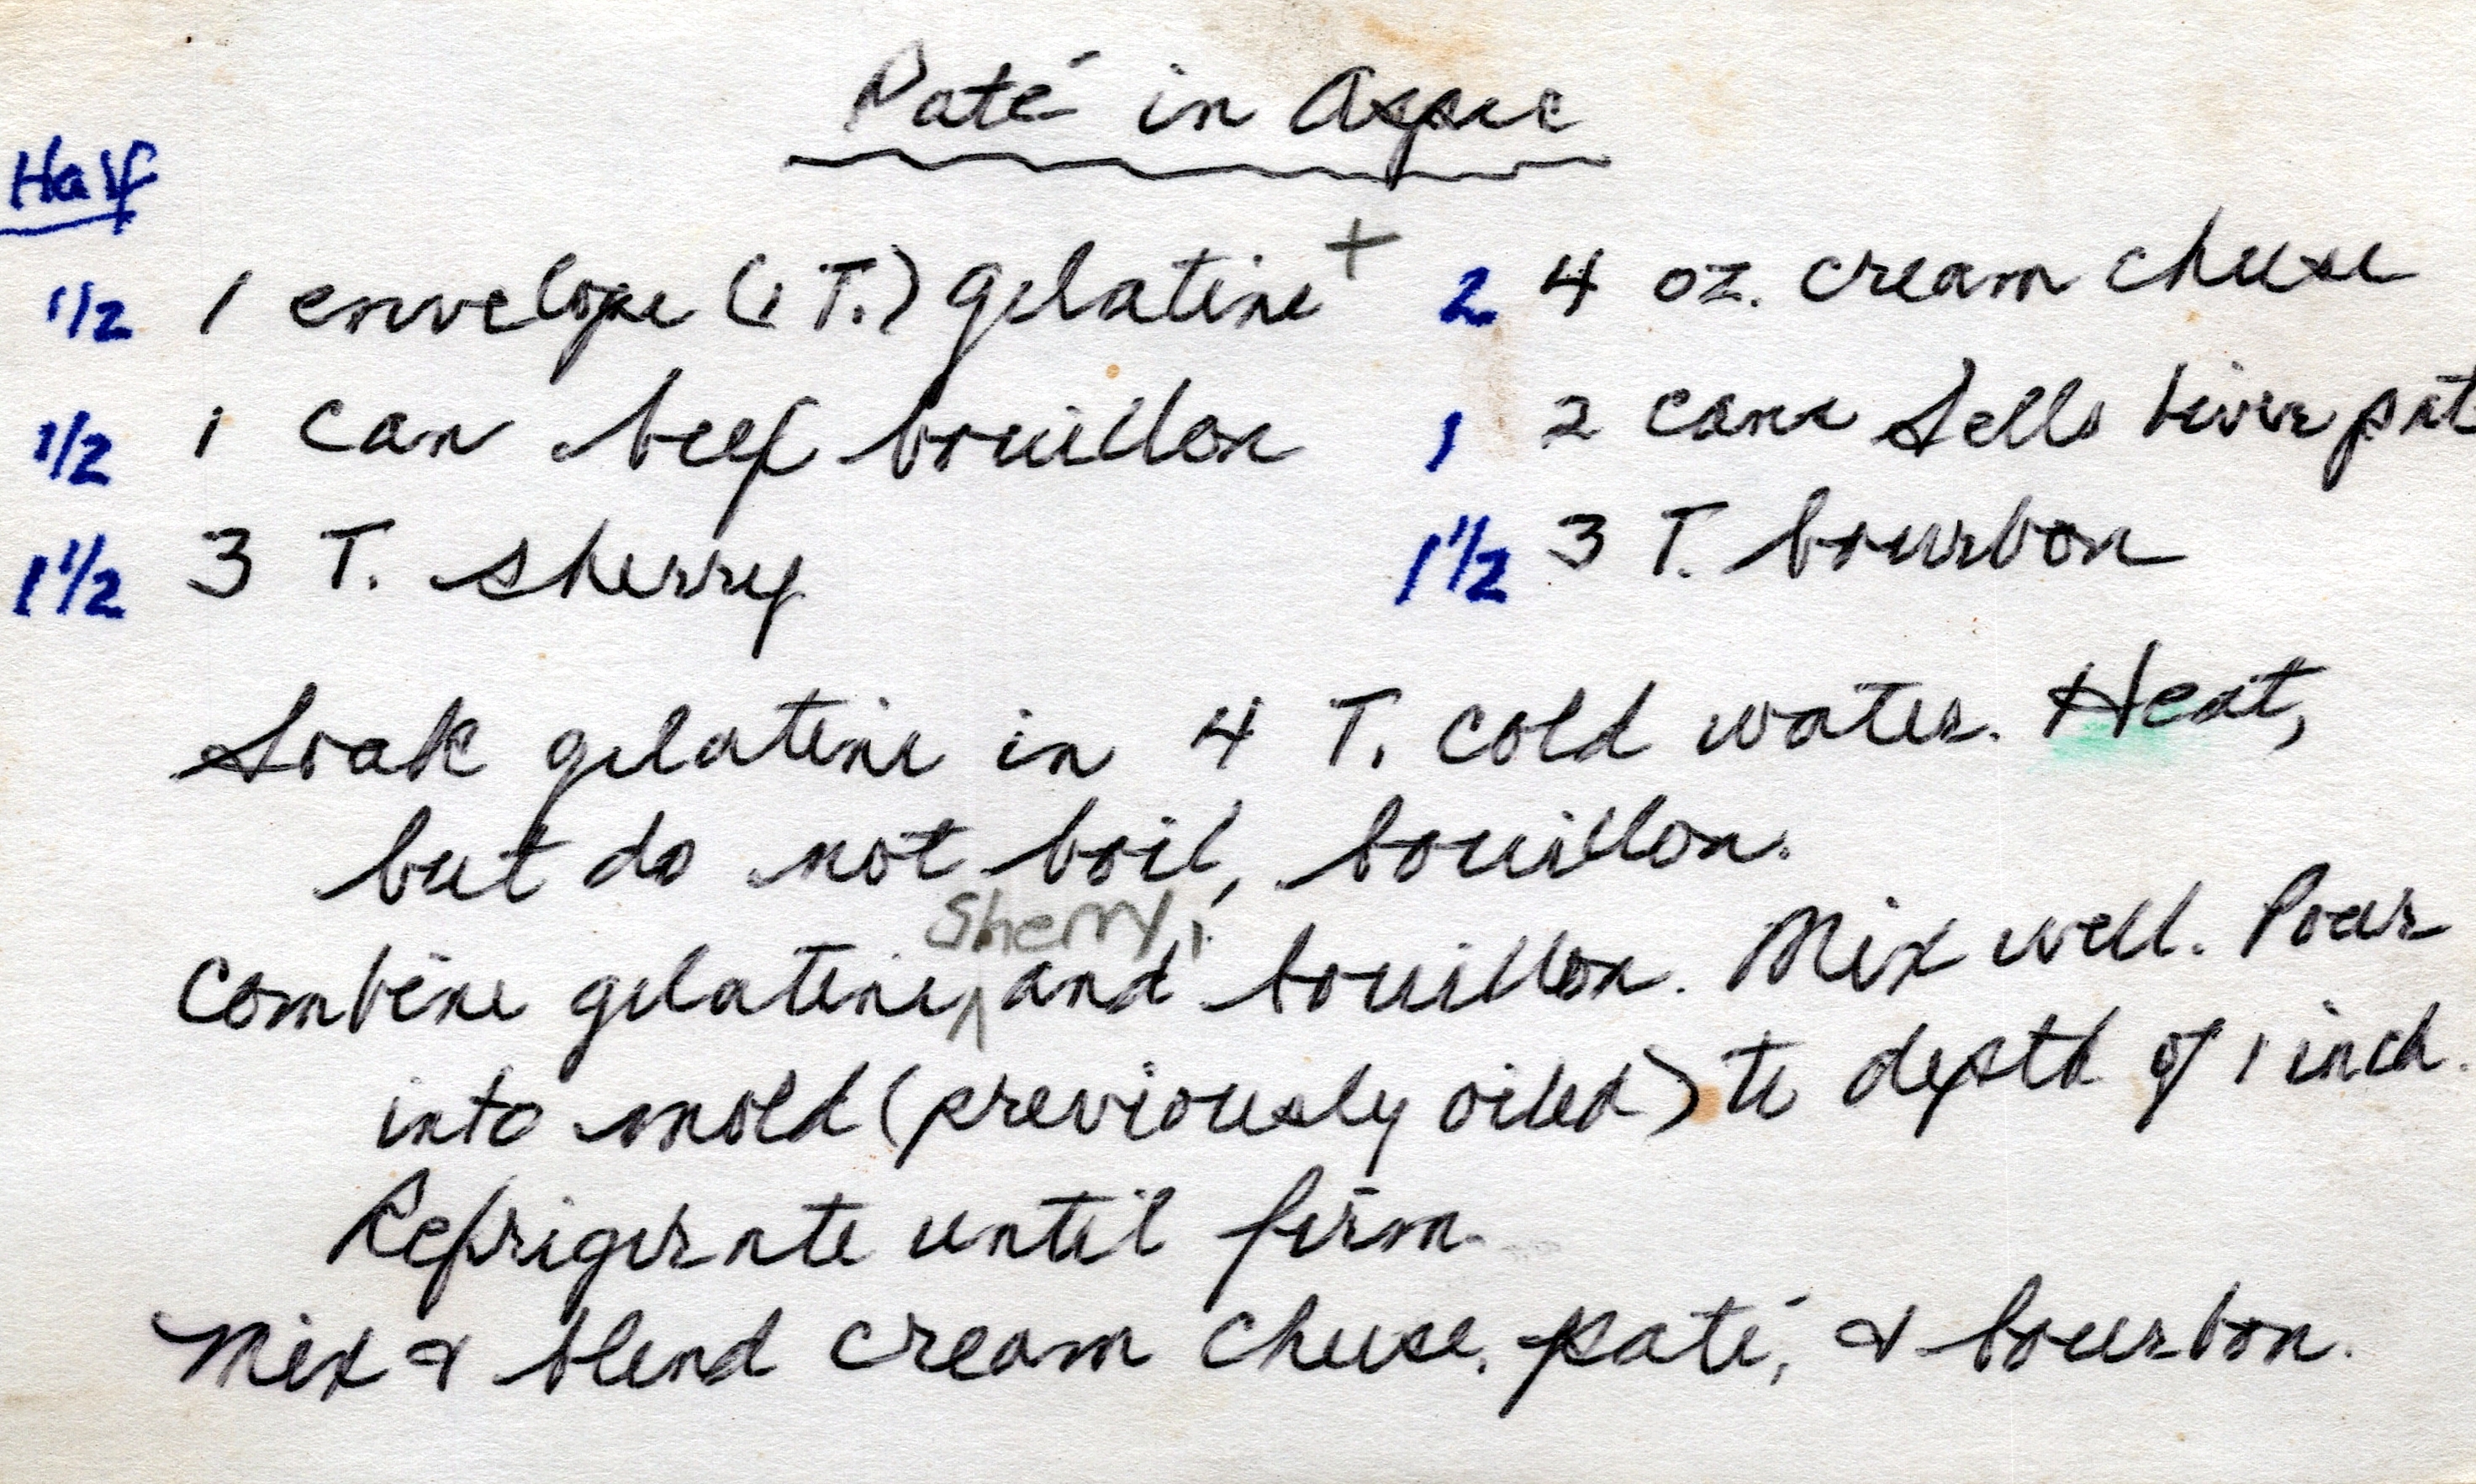 Paté in Aspic
Half
1/2 1 envelope (1 T.) gelatine + 2 4 oz. cream cheese
1/2 1 can beef bouillon 1 2 cans Sells liver pat
1 1/2 3 T. sherry 1 1/2 3 T. bourbon
Soak gelatine in 4 T. cold water. Heat,
but do not boil, bouillon.
Sherry,
Combine gelatine, and bouillon. Mix well. Pour
into mold (previously oiled) to depth of 1 inch.
Refrigerate until firm.
Mix & blend cream cheese, paté, & bourbon.